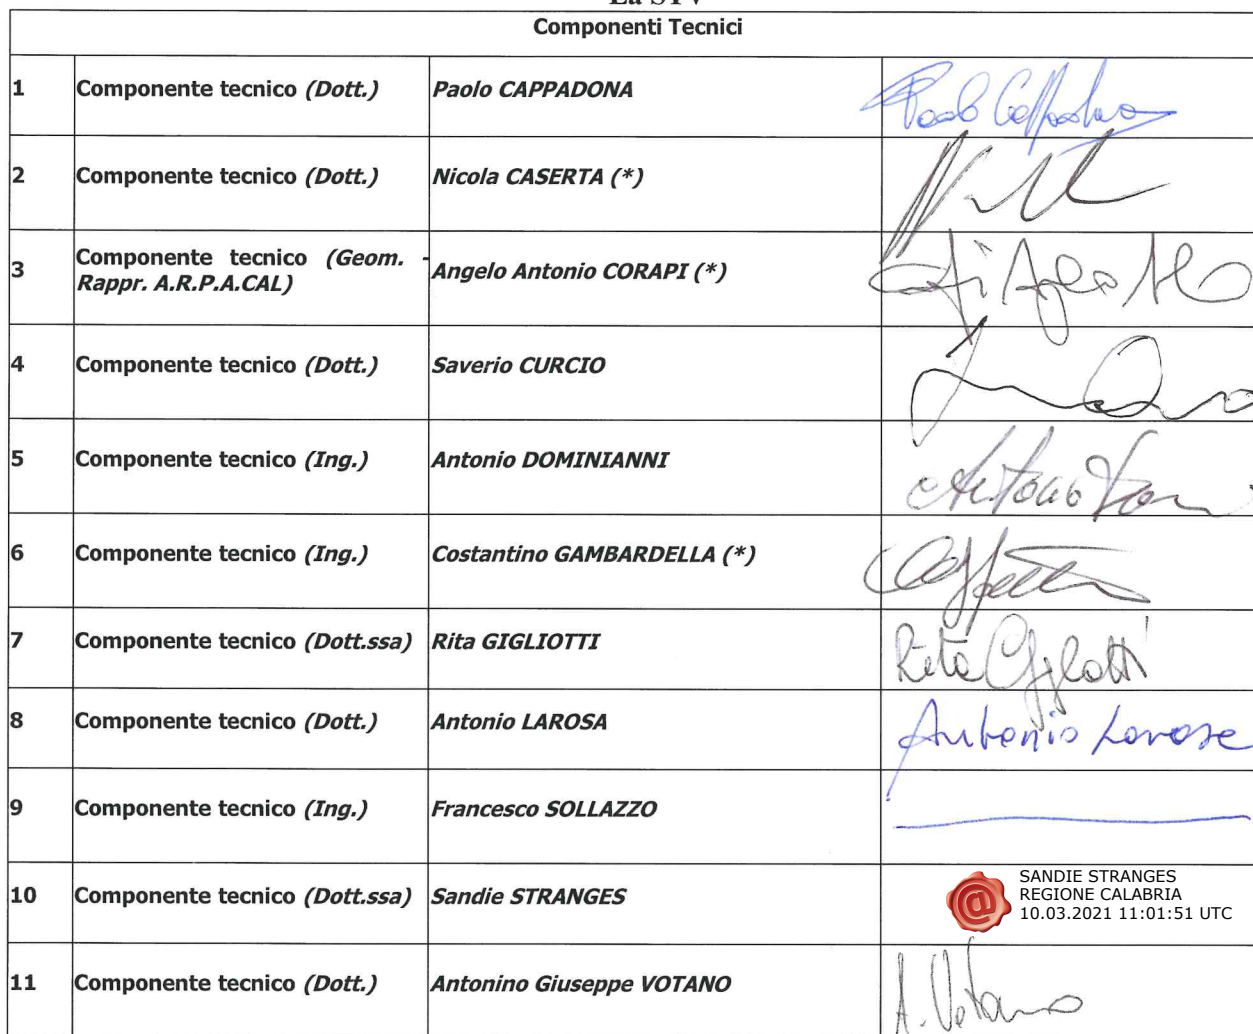 La STV
Componenti Tecnici
1 Componente tecnico (Dott.) Paolo CAPPADONA Paolo Cappadona
2 Componente tecnico (Dott.) Nicola CASERTA (*)
3 Componente tecnico (Geom. -
Rappr. A.R.P.A.CAL) Angelo Antonio CORAPI (*)
4 Componente tecnico (Dott.) Saverio CURCIO
5 Componente tecnico (Ing.) Antonio DOMINIANNI Antonio
6 Componente tecnico (Ing.) Costantino GAMBARDELLA (*)
7 Componente tecnico (Dott.ssa) Rita GIGLIOTTI Rita Gigliotti
8 Componente tecnico (Dott.) Antonio LAROSA Antonio Larosa
9 Componente tecnico (Ing.) Francesco SOLLAZZO
10 Componente tecnico (Dott.ssa) Sandie STRANGES
SANDIE STRANGES
REGIONE CALABRIA
10.03.2021 11:01:51 UTC
11 Componente tecnico (Dott.) Antonino Giuseppe VOTANO A. Votano